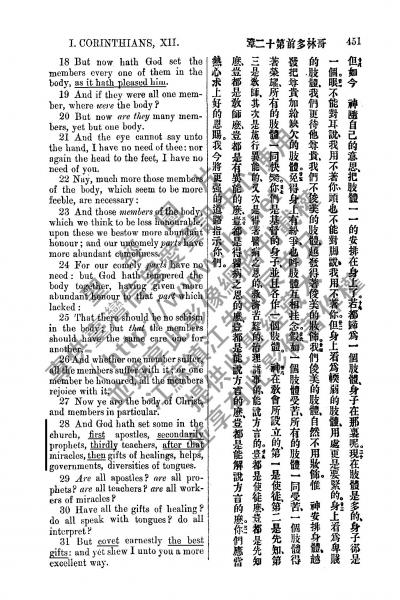 I. CORINTHIANS, XII.
章二十第前多林哥
451
18 But now hath God set the
members every one of them in the
body, as it hath pleased him.
19 And if they were all one mem-
ber, where were the body?
20 But now are they many mem-
bers, yet but one body.
21 And the eye cannot say unto
the hand, I have no need of thee: nor
again the head to the feet, I have no
need of you.
22 Nay, much more those members
of the body, which seem to be more
feeble, are necessary:
23 And those members of the body,
which we think to be less honourable,
upon these we bestow more abundant
honour; and our uncomely parts have
more abundant comeliness.
24 For our comely parts have no
need: but God hath tempered the
body together, having given more
abundant honour to that part which
lacked:
25 That there should be no schism
in the body; but that the members
should have the same care one for
another.
26 And whether one member suffer,
all the members suffer with it; or one
member be honoured, all the members
rejoice with it.
27 Now ye are the body of Christ,
and members in particular.
28 And God hath set some in the
church, first apostles, secondarily
prophets, thirdly teachers, after that
miracles, then gifts of healings, helps,
governments, diversities of tongues.
29 Are all apostles? are all pro-
phets? are all teachers? are all work-
ers of miracles?
30 Have all the gifts of healing?
do all speak with tongues? do all
interpret?
31 But covet earnestly the best
gifts: and yet shew I unto you a more
excellent way.
但如今 神隨自己的意思把肢體一一的安排在身上了若都歸爲一個肢體身子在那裏呢現在肢體是多的身子卻是
一個眼不能對手說我用不著你頭也不能對腳說我用不著你但身上看爲軟弱的肢體用處更是要緊的身上看爲卑賤
的肢體我們更待他尊貴我們不俊美的肢體越發得著俊美的妝飾我們俊美的肢體自然不用妝飾惟 神安排身體越
發把尊貴加給缺欠的肢體免得身上有紛爭也叫肢體互相挂念假如一個肢體受苦所有的肢體一同受苦一個肢體得
著榮耀所有的肢體一同快樂你們是基督的身子並且各作一個肢體 神在敎會所立的第一是使徒第二是先知第
三是敎師其次是施行異能的又次是得著醫病之恩的救濟苦難的治理諸事的能說方言的豈都是使徒麽豈都是先知
麽豈都是敎師麽豈都是有異能的麽豈都是得醫病之恩的麽豈都是能說方言的麽豈都是能解說方言的麽你們應當
熱心求上好的恩賜我今將更强的道指示你們